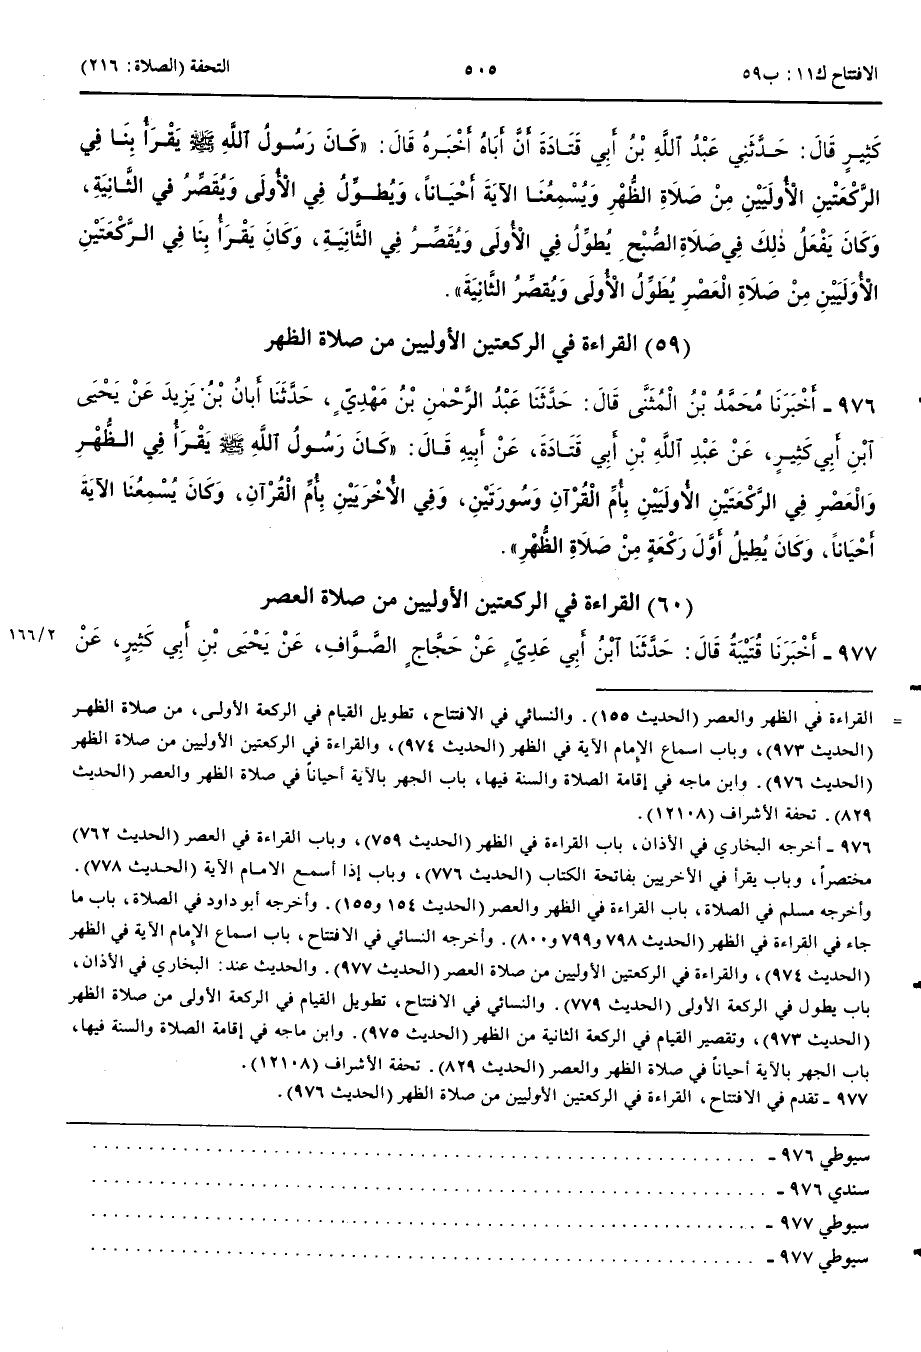 الافتتاح ك١١: ب٥٩ ٥٠٥ التحفة (الصلاة: ٢١٦)
كَثِيرٍ قَالَ: حَدَّثَنِي عَبْدُ ٱللَّهِ بْنُ أَبِي قَتَادَةَ أَنَّ أَبَاهُ أَخْبَرَهُ قَالَ: «كَانَ رَسُولُ اللَّهِ ﷺ يَقْرَأُ بِنَا فِي
الرَّكْعَتَيْنِ الْأُولَيَيْنِ مِنْ صَلَاةِ الظُّهْرِ وَيُسْمِعُنَا الآيَةَ أَحْيَاناً، وَيُطَوِّلُ فِي الْأُولَى وَيُقَصِّرُ فِي الثَّانِيَةِ،
وَكَانَ يَفْعَلُ ذٰلِكَ فِي صَلَاةِ الصُّبْحِ يُطَوِّلُ فِي الْأُولَى وَيُقَصِّرُ فِي الثَّانِيَةِ، وَكَانَ يَقْرَأُ بِنَا فِي الرَّكْعَتَيْنِ
الْأُوَلَيَيْنِ مِنْ صَلَاةِ الْعَصْرِ يُطَوِّلُ الْأُولَى وَيُقَصِّرُ الثَّانِيَةَ».
(٥٩) القراءة في الركعتين الأوليين من صلاة الظهر
٩٧٦ ـ أَخْبَرَنَا مُحَمَّدُ بْنُ الْمُثَنَّى قَالَ: حَدَّثَنَا عَبْدُ الرَّحْمٰنِ بْنُ مَهْدِيٍّ، حَدَّثَنَا أَبَانُ بْنُ يَزِيدَ عَنْ يَحْيَى
ٱبْنِ أَبِي كَثِيرٍ، عَنْ عَبْدِ ٱللَّهِ بْنِ أَبِي قَتَادَةَ، عَنْ أَبِيهِ قَالَ: «كَانَ رَسُولُ اللَّهِ ﷺ يَقْرَأُ فِي الظُّهْرِ
وَالْعَصْرِ فِي الرَّكْعَتَيْنِ الْأُولَيَيْنِ بِأُمِّ الْقُرْآنِ وَسُورَتَيْنِ، وَفِي الْأُخْرَيَيْنِ بِأُمِّ الْقُرْآنِ، وَكَانَ يُسْمِعُنَا الآيَةَ
أَحْيَاناً، وَكَانَ يُطِيلُ أَوَّلَ رَكْعَةٍ مِنْ صَلَاةِ الظُّهْرِ».
(٦٠) القراءة في الركعتين الأوليين من صلاة العصر
٩٧٧ ـ أَخْبَرَنَا قُتَيْبَةُ قَالَ: حَدَّثَنَا ٱبْنُ أَبِي عَدِيٍّ عَنْ حَجَّاجٍ الصَّوَّافِ، عَنْ يَحْيَى بْنِ أَبِي كَثِيرٍ، عَنْ ١٦٦/٢
= القراءة في الظهر والعصر (الحديث ١٥٥). والنسائي في الافتتاح، تطويل القيام في الركعة الأولى، من صلاة الظهر
(الحديث ٩٧٣)، وباب اسماع الإمام الآية في الظهر (الحديث ٩٧٤)، والقراءة في الركعتين الأوليين من صلاة الظهر
(الحديث ٩٧٦). وابن ماجه في إقامة الصلاة والسنة فيها، باب الجهر بالآية أحياناً في صلاة الظهر والعصر (الحديث
٨٢٩). تحفة الأشراف (١٢١٠٨).
٩٧٦ ـ أخرجه البخاري في الأذان، باب القراءة في الظهر (الحديث ٧٥٩)، وباب القراءة في العصر (الحديث ٧٦٢)
مختصراً، وباب يقرأ في الأخريين بفاتحة الكتاب (الحديث ٧٧٦)، وباب إذا أسمع الامام الآية (الحديث ٧٧٨).
وأخرجه مسلم في الصلاة، باب القراءة في الظهر والعصر (الحديث ١٥٤ و١٥٥). وأخرجه أبو داود في الصلاة، باب ما
جاء في القراءة في الظهر (الحديث ٧٩٨ و٧٩٩ و٨٠٠). وأخرجه النسائي في الافتتاح، باب اسماع الإمام الآية في الظهر
(الحديث ٩٧٤)، والقراءة في الركعتين الأوليين من صلاة العصر (الحديث ٩٧٧). والحديث عند: البخاري في الأذان،
باب يطول في الركعة الأولى (الحديث ٧٧٩). والنسائي في الافتتاح، تطويل القيام في الركعة الأولى من صلاة الظهر
(الحديث ٩٧٣)، وتقصير القيام في الركعة الثانية من الظهر (الحديث ٩٧٥). وابن ماجه في إقامة الصلاة والسنة فيها،
باب الجهر بالآية أحياناً في صلاة الظهر والعصر (الحديث ٨٢٩). تحفة الأشراف (١٢١٠٨).
٩٧٧ ـ تقدم في الافتتاح، القراءة في الركعتين الأوليين من صلاة الظهر (الحديث ٩٧٦).
سيوطي ٩٧٦ ـ ............................................................
سندي ٩٧٦ ـ ............................................................
سيوطي ٩٧٧ ـ ............................................................
سيوطي ٩٧٧ ـ ............................................................